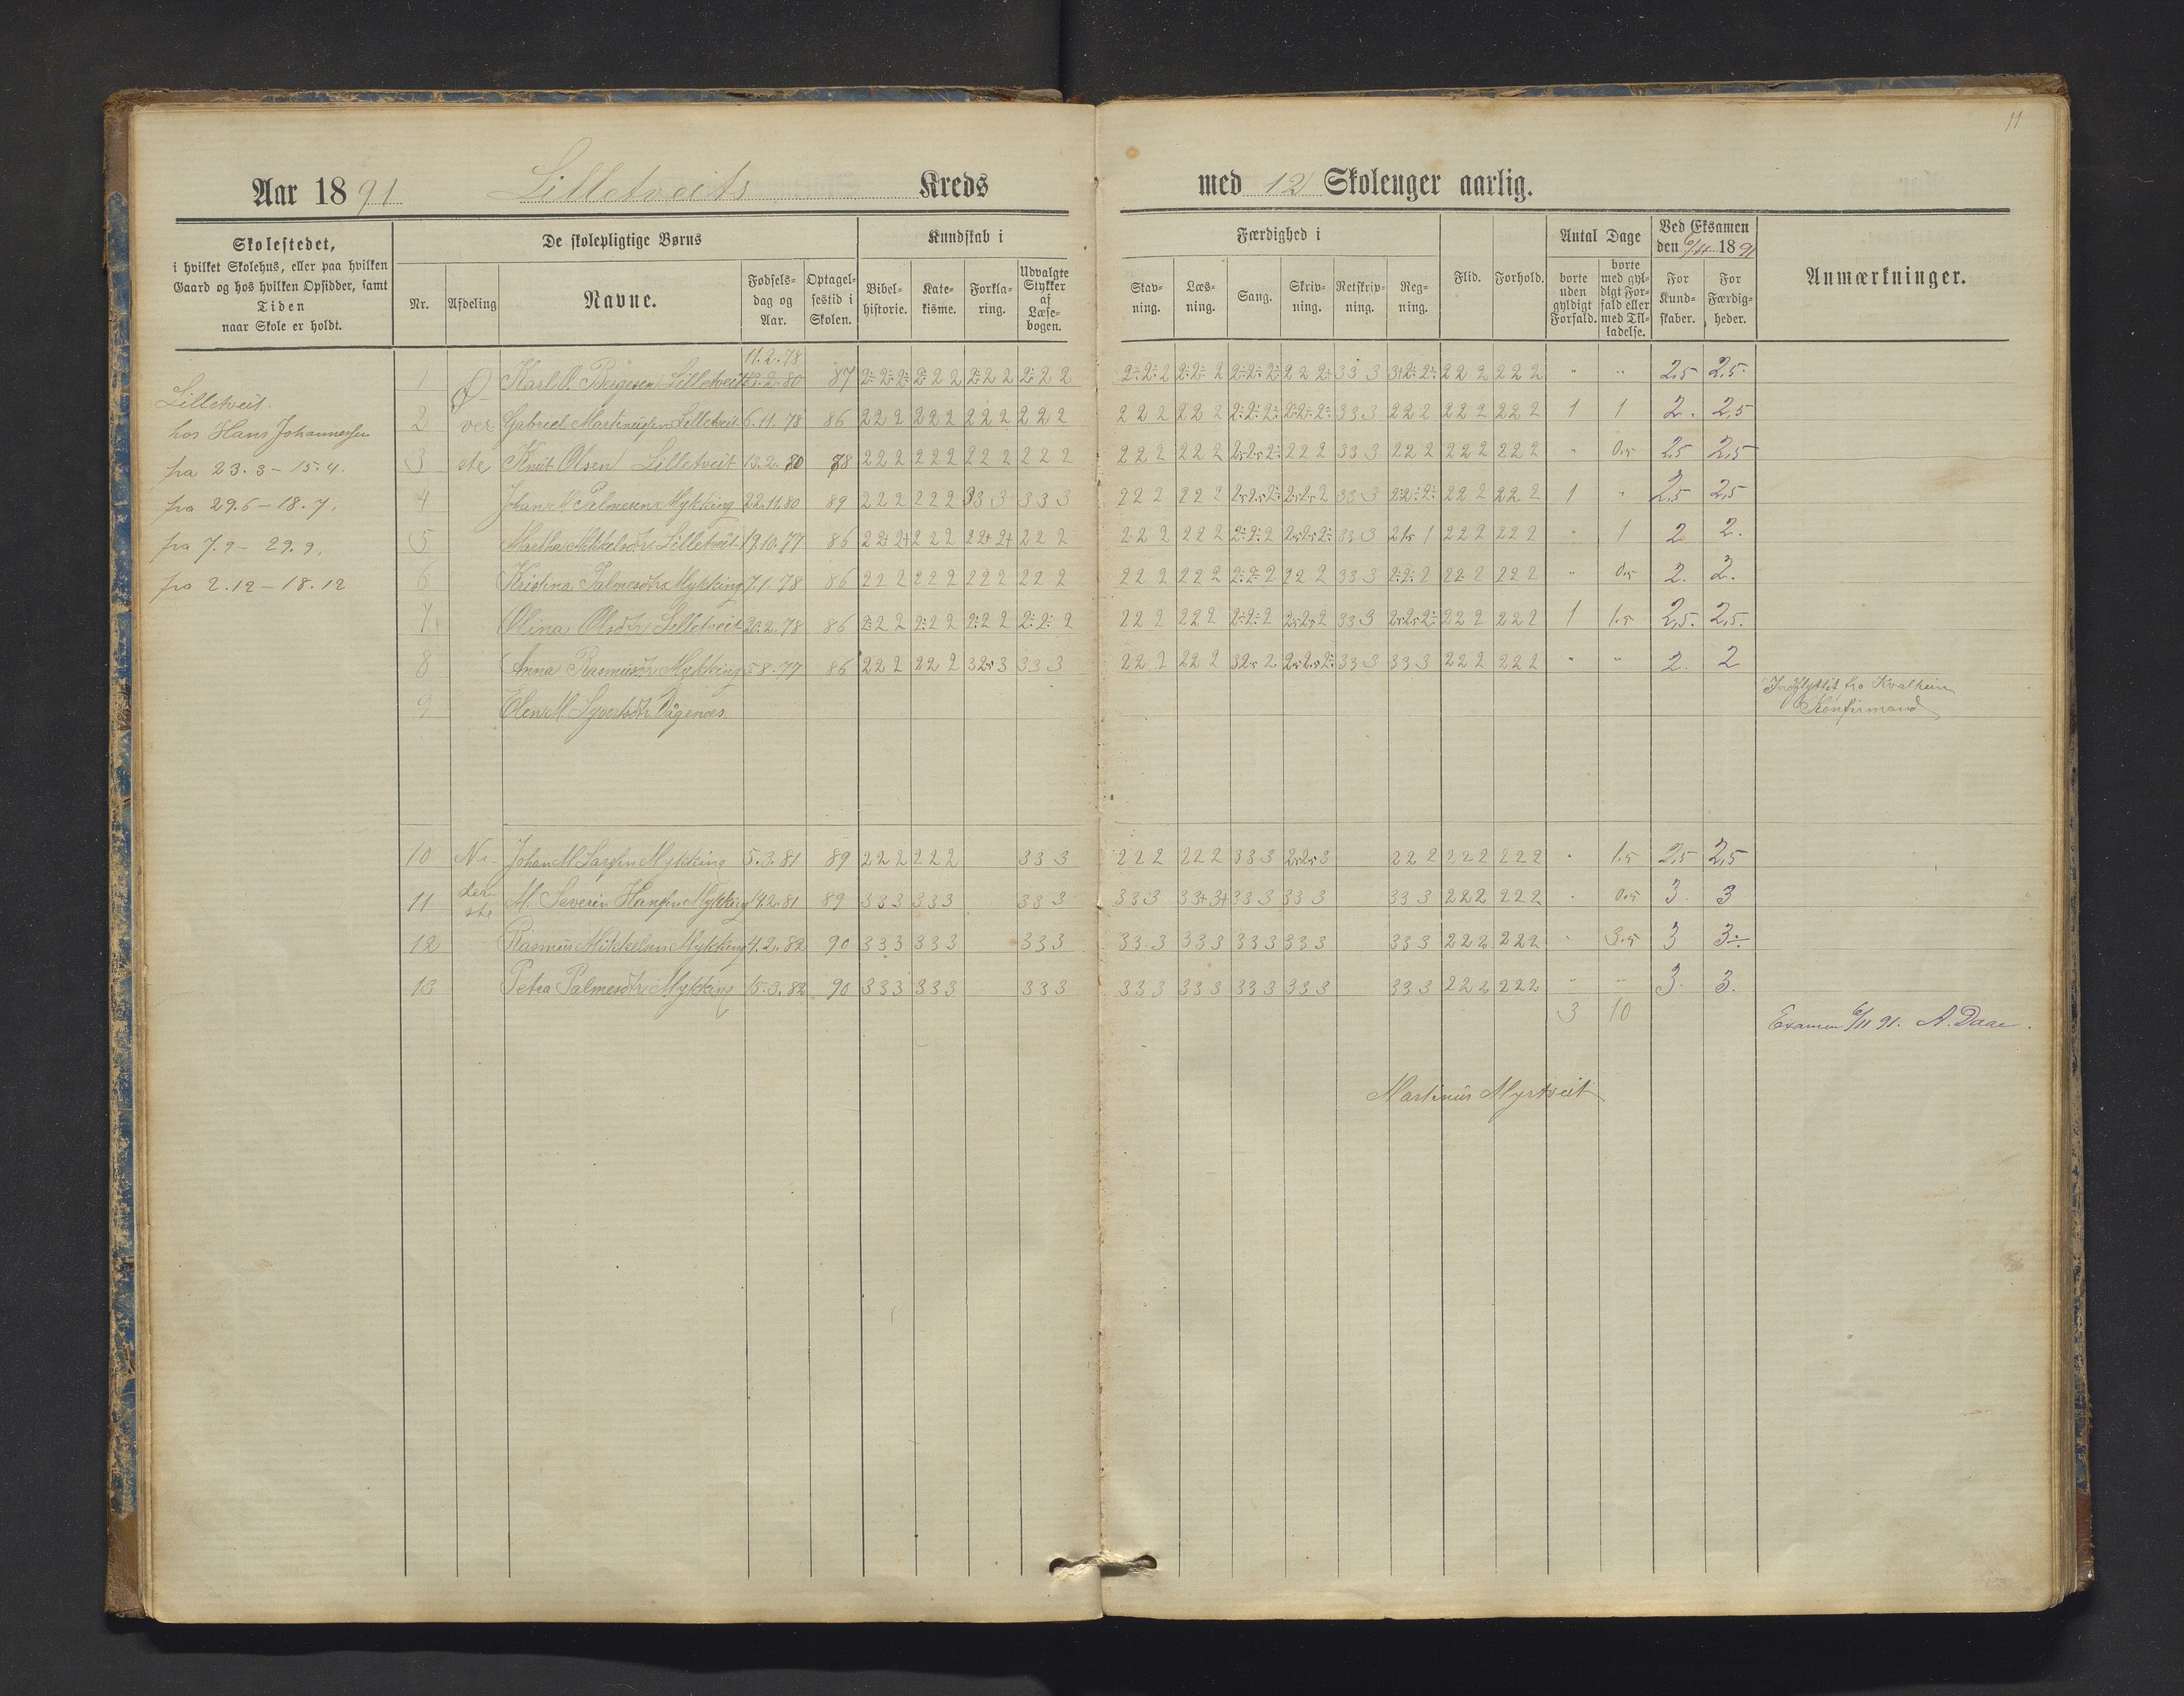 11
Aar 1891 Lilletveits Kreds med 12 Skoleuger aarlig.
Skolestedet,
i hvilket Skolehus, eller paa hvilken
Gaard og hos hvilken Opsidder, samt
Tiden
naar Skole er holdt.
De skolepligtige Børns
Nr. Afdeling Navne. Fødsels-dag og Aar. Optagel-sestid i Skolen.
Kundskab i
Bibel-historie. Kate-kisme. Forkla-ring. Udvalgte Stykker af Læse-bogen.
Færdighed i
Stav-ning. Læs-ning. Sang. Skriv-ning. Retskriv-ning. Reg-ning.
Flid. Forhold.
Antal Dage
borte uden gyldigt Forfald. borte med gyl-digt For-fald eller med Til-ladelse.
Ved Eksamen
den 6/11 1891
For Kund-skaber. For Færdig-heder.
Anmærkninger.
Lilletveit.
hos Hans Johannessen
fra 23.3 - 15.4.
fra 29.6 - 18.7.
fra 7.9 - 29.9.
fra 2.12 - 18.12
Øverste
11.2.78
1 Karl O. Børgesen Lilletveit 87 2÷ 2÷ 2÷ 2÷ 2 2 2÷ 2 2 2÷ 2 2 2÷ 2÷ 2 2÷ 2÷ 2 2÷ 2÷ 2÷ 2 2 2÷ 3 3 3 3+ 2÷ 2÷ 2 2 2 2 2 2 " " 2,5 2,5.
2 Gabriel Martinussen Lilletveit 6.11.78 86 2 2 2 2 2 2 2 2 2 2 2 2 2 2 2 2 2 2 2÷ 2÷ 2÷ 2÷ 2÷ 2÷ 3 3 3 2 2 2 2 2 2 2 2 2 1 1 2. 2,5
3 Knut Olsen Lilletveit 13.2.80 88 2 2 2 2 2 2 2 2 2 2 2 2 2 2 2 2 2 2 2,5 2,5 2÷ 2 2 2 3 3 3 2 2 2 2 2 2 2 2 2 " 0.5 2,5 2,5
4 Johan M. Palmesen Mykking 22.11.80 89 2 2 2 2 2 2 3 3 3 3 3 3 2 2 2 2 2 2 2,5 2,5 2÷ 2,5 2,5 2 3 3 3 2÷ 2÷ 2÷ 2 2 2 2 2 2 1 " 2,5 2,5
5 Martha Mikkelsdtr. Lilletveit 19.10.77 86 2 2+ 2+ 2 2 2 2 2+ 2+ 2 2 2 2 2 2 2 2 2 2÷ 2÷ 2 2,5 2,5 2÷ 3 3 3 2 1,5 1 2 2 2 2 2 2 " 1 2 2.
6 Kristina Palmesdtr. Mykking 7.1.78 86 2 2 2 2 2 2 2 2 2 2 2 2 2 2 2 2 2 2 2÷ 2÷ 2 2 2 2 3 3 3 2÷ 2÷ 2 2 2 2 2 2 2 " 0.5 2. 2.
7 Olina Olsdtr. Lilletveit 20.2.78 86 2÷ 2 2 2÷ 2 2 2÷ 2 2 2÷ 2÷ 2 2 2 2 2 2 2 2÷ 2÷ 2 2,5 2,5 2 3 3 3 2,5 2,5 2÷ 2 2 2 2 2 2 1 1.5 2,5. 2,5.
8 Anna Rasmusdtr. Mykking 5.8.77 86 2 2 2 2 2 2 3 2,5 3 3 3 3 2 2 2 2 2 2 3 2,5 2 2,5 2,5 2÷ 3 3 3 3 3 3 2 2 2 2 2 2 " " 2. 2
9 Elen M. Syvertsdtr. Vågenes Indflyttet fra Kvalheim
Konfirmand
Nederste
10 Johan M Larssen Mykking 5.3.81 89 2 2 2 2 2 2 3 3 3 2 2 2 2 2 2 3 3 3 2,5 2,5 3 2 2 2 2 2 2 2 2 2 " 1.5 2,5 2,5
11 M. Severin Hanssen Mykking 14.2.81 89 3 3 3 3 3 3 3 3 3 3 3 3 3 3+ 3+ 3 3 3 3 3 3 3 3 3 2 2 2 2 2 2 " 0.5 3. 3
12 Rasmus Mikkelsen Mykking 4.2.82 90 3 3 3 3 3 3 3 3 3 3 3 3 3 3 3 3 3 3 3 3 3 3 3 3 2 2 2 2 2 2 " 3.5 3 3÷
13 Petra Palmesdtr. Mykking 15.3.82 90 3 3 3 3 3 3 3 3 3 3 3 3 3 3 3 3 3 3 3 3 3 3 3 3 2 2 2 2 2 2 " " 3. 3.
3 10
Examen 6/11 91. A. Daae.
Martinus Myrtveit